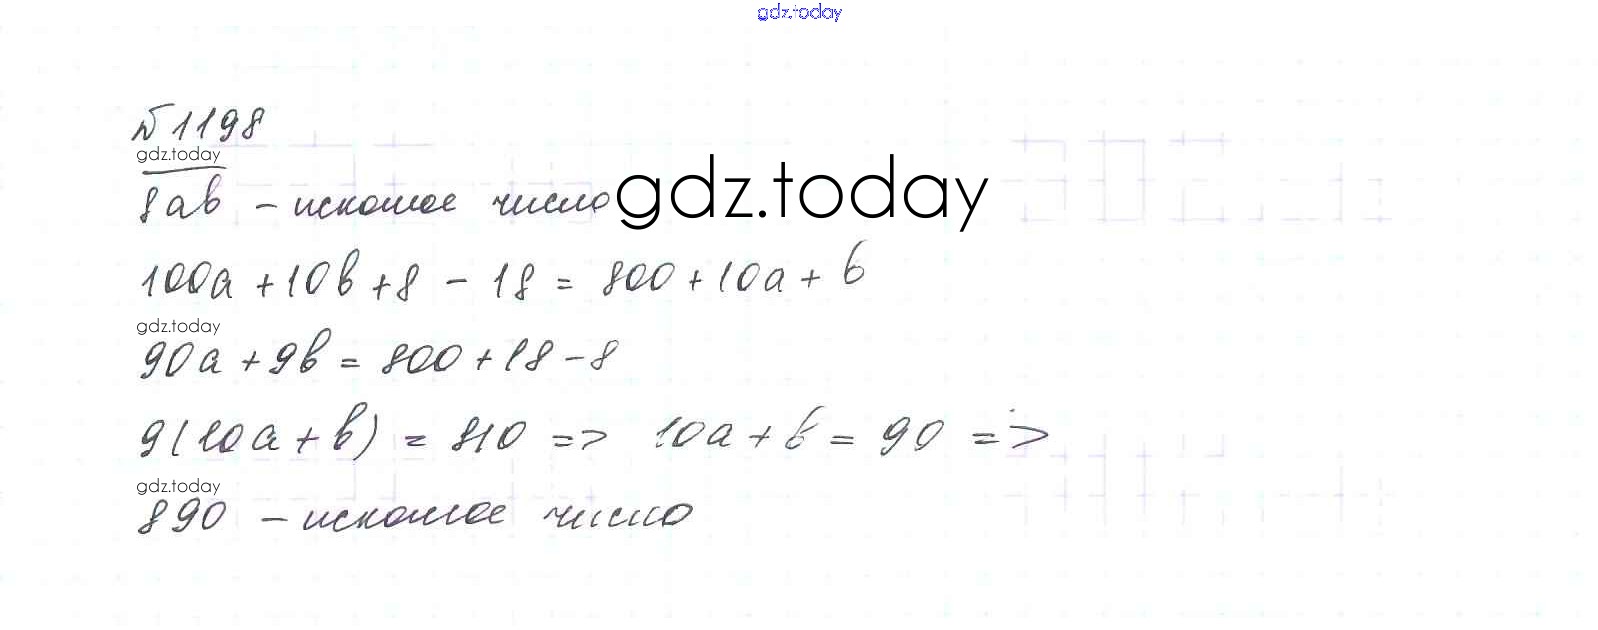 gdz.today
№1198
gdz.today
8ab – искомое число
gdz.today
100a + 10b + 8 – 18 = 800 + 10a + b
gdz.today
90a + 9b = 800 + 18 – 8
9(10a + b) = 810 => 10a + b = 90 =>
gdz.today
890 – искомое число